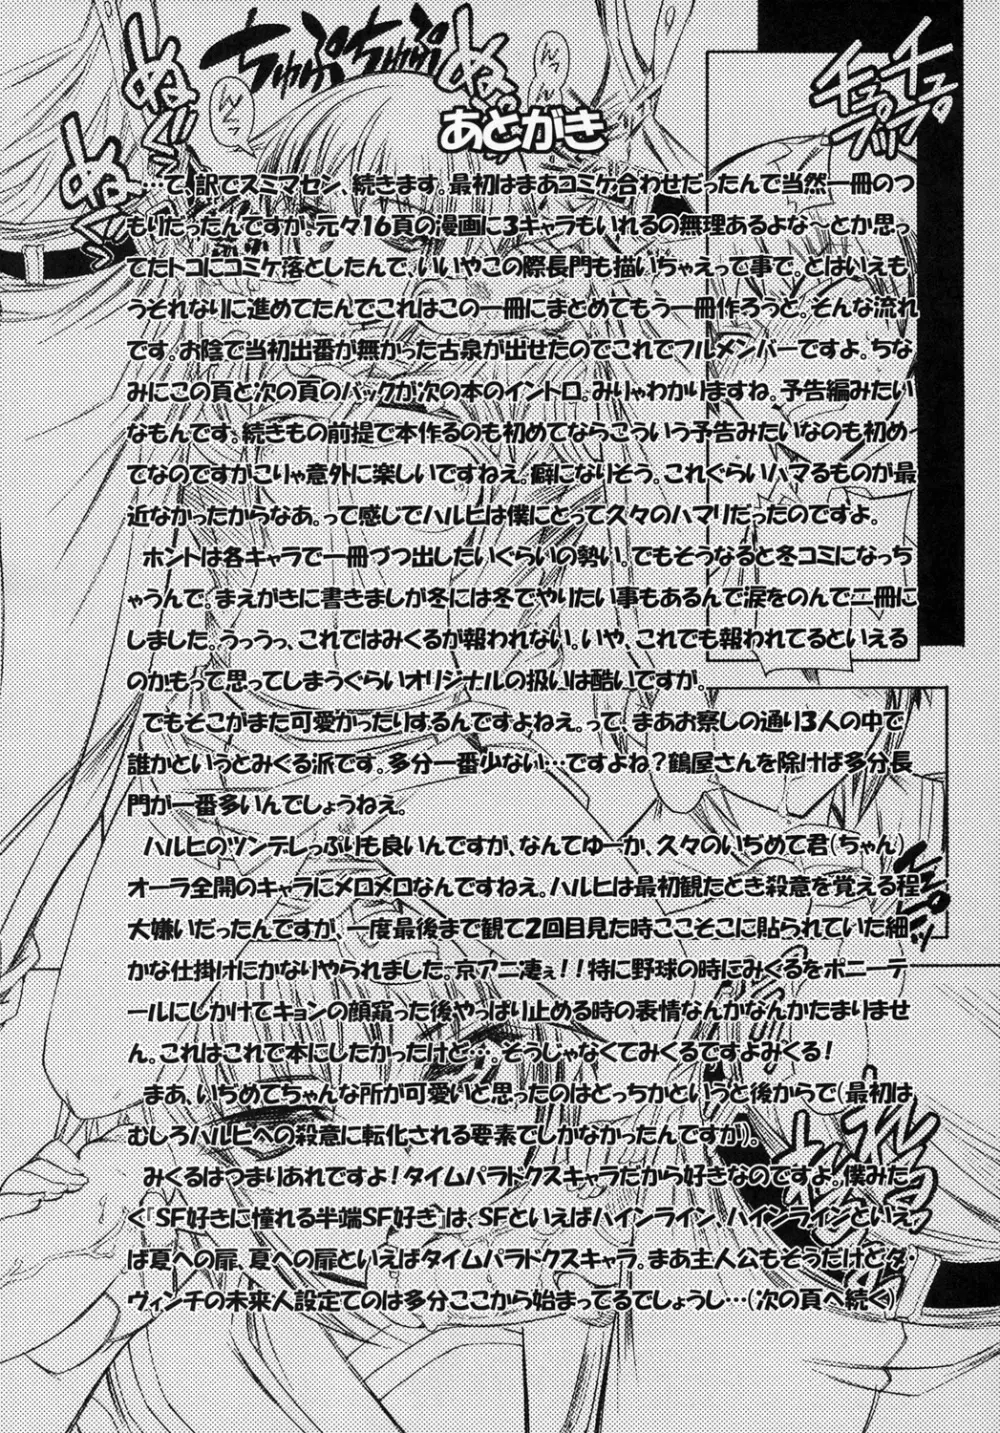 あとがき
…て、訳でスミマセン、続きます。最初はまあコミケ合わせだったんで当然一冊のつ
もりだったんですが、元々16頁の漫画に3キャラもいれるの無理あるよな～とか思っ
てたトコにコミケ落としたんで、いいやこの際長門も描いちゃえって事で。とはいえも
うそれなりに進めてたんでこれはこの一冊にまとめてもう一冊作ろうと。そんな流れ
です。お陰で当初出番が無かった古泉が出せたのでこれでフルメンバーですよ。ちな
みにこの頁と次の頁のバックが次の本のイントロ。みりゃわかりますね。予告編みたい
なもんです。続きもの前提で本作るのも初めてならこういう予告みたいなのも初め
てなのですがこりゃ意外に楽しいですねえ。癖になりそう。これぐらいハマるものが最
近なかったからなあ。って感じでハルヒは僕にとって久々のハマリだったのですよ。
ホントは各キャラで一冊づつ出したいぐらいの勢い。でもそうなると冬コミになっち
ゃうんで。まえがきに書きましが冬には冬でやりたい事もあるんで涙をのんで二冊に
しました。うっうっ、これではみくるが報われない。いや、これでも報われてるといえる
のかもって思ってしまうぐらいオリジナルの扱いは酷いですが。
でもそこがまた可愛かったりするんですよねえ。って、まあお察しの通り3人の中で
誰かというとみくる派です。多分一番少ない…ですよね？鶴屋さんを除けば多分長
門が一番多いんでしょうねえ。
ハルヒのツンデレっぷりも良いんですが、なんてゆーか、久々のいぢめて君(ちゃん)
オーラ全開のキャラにメロメロなんですねえ。ハルヒは最初観たとき殺意を覚える程
大嫌いだったんですが、一度最後まで観て2回目見た時ここそこに貼られていた細
かな仕掛けにかなりやられました。京アニ凄ぇ！！特に野球の時にみくるをポニーテ
ールにしかけてキョンの顔窺った後やっぱり止める時の表情なんかなんかたまりませ
ん。これはこれで本にしたかったけど…。そうじゃなくてみくるですよみくる！
まあ、いぢめてちゃんな所が可愛いと思ったのはどっちかというと後からで(最初は
むしろハルヒへの殺意に転化される要素でしかなかったんですが)。
みくるはつまりあれですよ！タイムパラドクスキャラだから好きなのですよ。僕みた
く『SF好きに憧れる半端SF好き』は、SFといえばハインライン、ハインラインといえ
ば夏への扉、夏への扉といえばタイムパラドクスキャラ。まあ主人公もそうだけどダ・
ヴィンチの未来人設定てのは多分ここから始まってるでしょうし…(次の頁へ続く)
ちゅぷちゅぷ
チュプ
チュプ